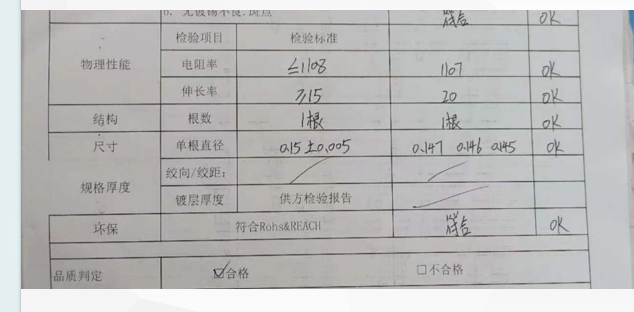 符合 OK
检验项目 检验标准
物理性能 电阻率 ≤1108 1107 OK
伸长率 ≥15 20 OK
结构 根数 1根 1根 OK
尺寸 单根直径 0.15±0.005 0.147 0.146 0.145 OK
规格厚度 绞向/绞距:
镀层厚度 供方检验报告
环保 符合Rohs&REACH 符合 OK
品质判定 ☑合格 □不合格